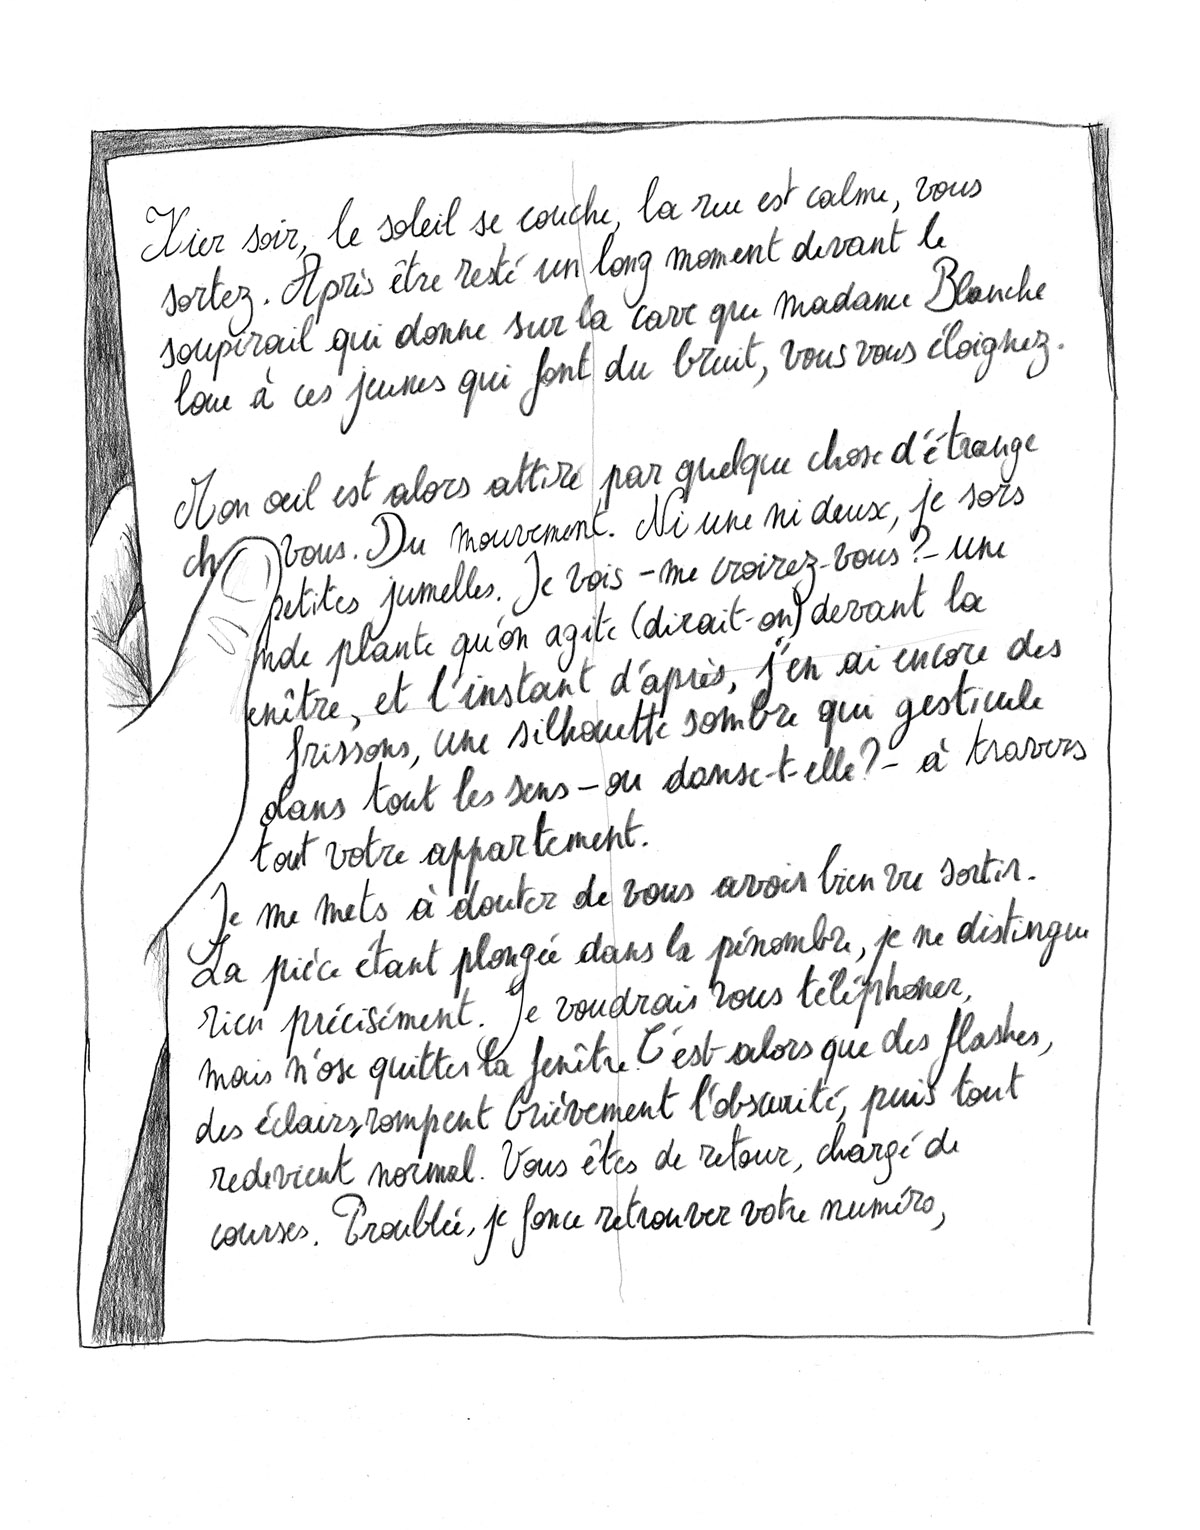 Hier soir, le soleil se couche, la rue est calme, vous
sortez. Après être resté un long moment devant le
soupirail qui donne sur la cave que madame Blanche
loue à ces jeunes qui font du bruit, vous vous éloignez.
Mon oeil est alors attiré par quelque chose d'étrange
ch vous. Du mouvement. Ni une ni deux, je sors
petites jumelles. Je vois - me croirez-vous ? - une
nde plante qu'on agite (dirait-on) devant la
enêtre, et l'instant d'après, j'en ai encore des
frissons, une silhouette sombre qui gesticule
dans tout les sens - ou danse-t-elle ? - à travers
tout votre appartement.
Je me mets à douter de vous avoir bien vu sortir.
La pièce étant plongée dans la pénombre, je ne distingue
rien précisément. Je voudrais vous téléphoner,
mais n'ose quitter la fenêtre. C'est alors que des flashes,
des éclairs, rompent brièvement l'obscurité, puis tout
redevient normal. Vous êtes de retour, chargé de
courses. Troublée, je fonce retrouver votre numéro,